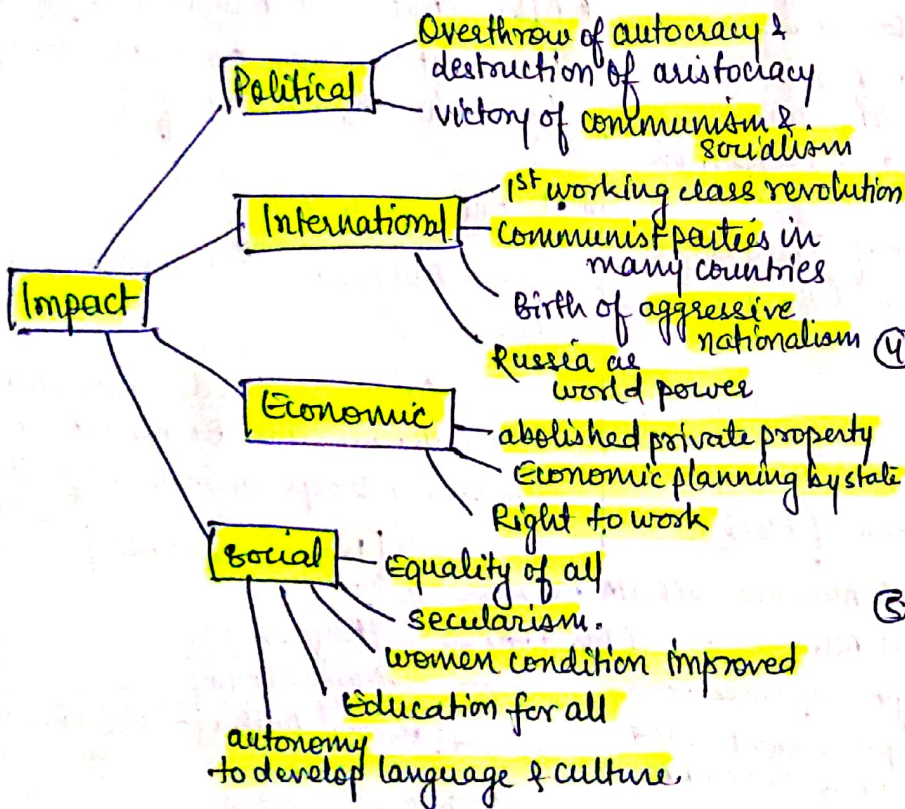 Overthrow of autocracy &
destruction of aristocracy
Political
victory of communism &
socialism
1st working class revolution
International
communist parties in
many countries
Impact
Birth of aggressive
nationalism
④
Russia as
world power
Economic
abolished private property
Economic planning by state
Right to work
social
Equality of all
⑤
secularism.
women condition improved
Education for all
autonomy
to develop language & culture.